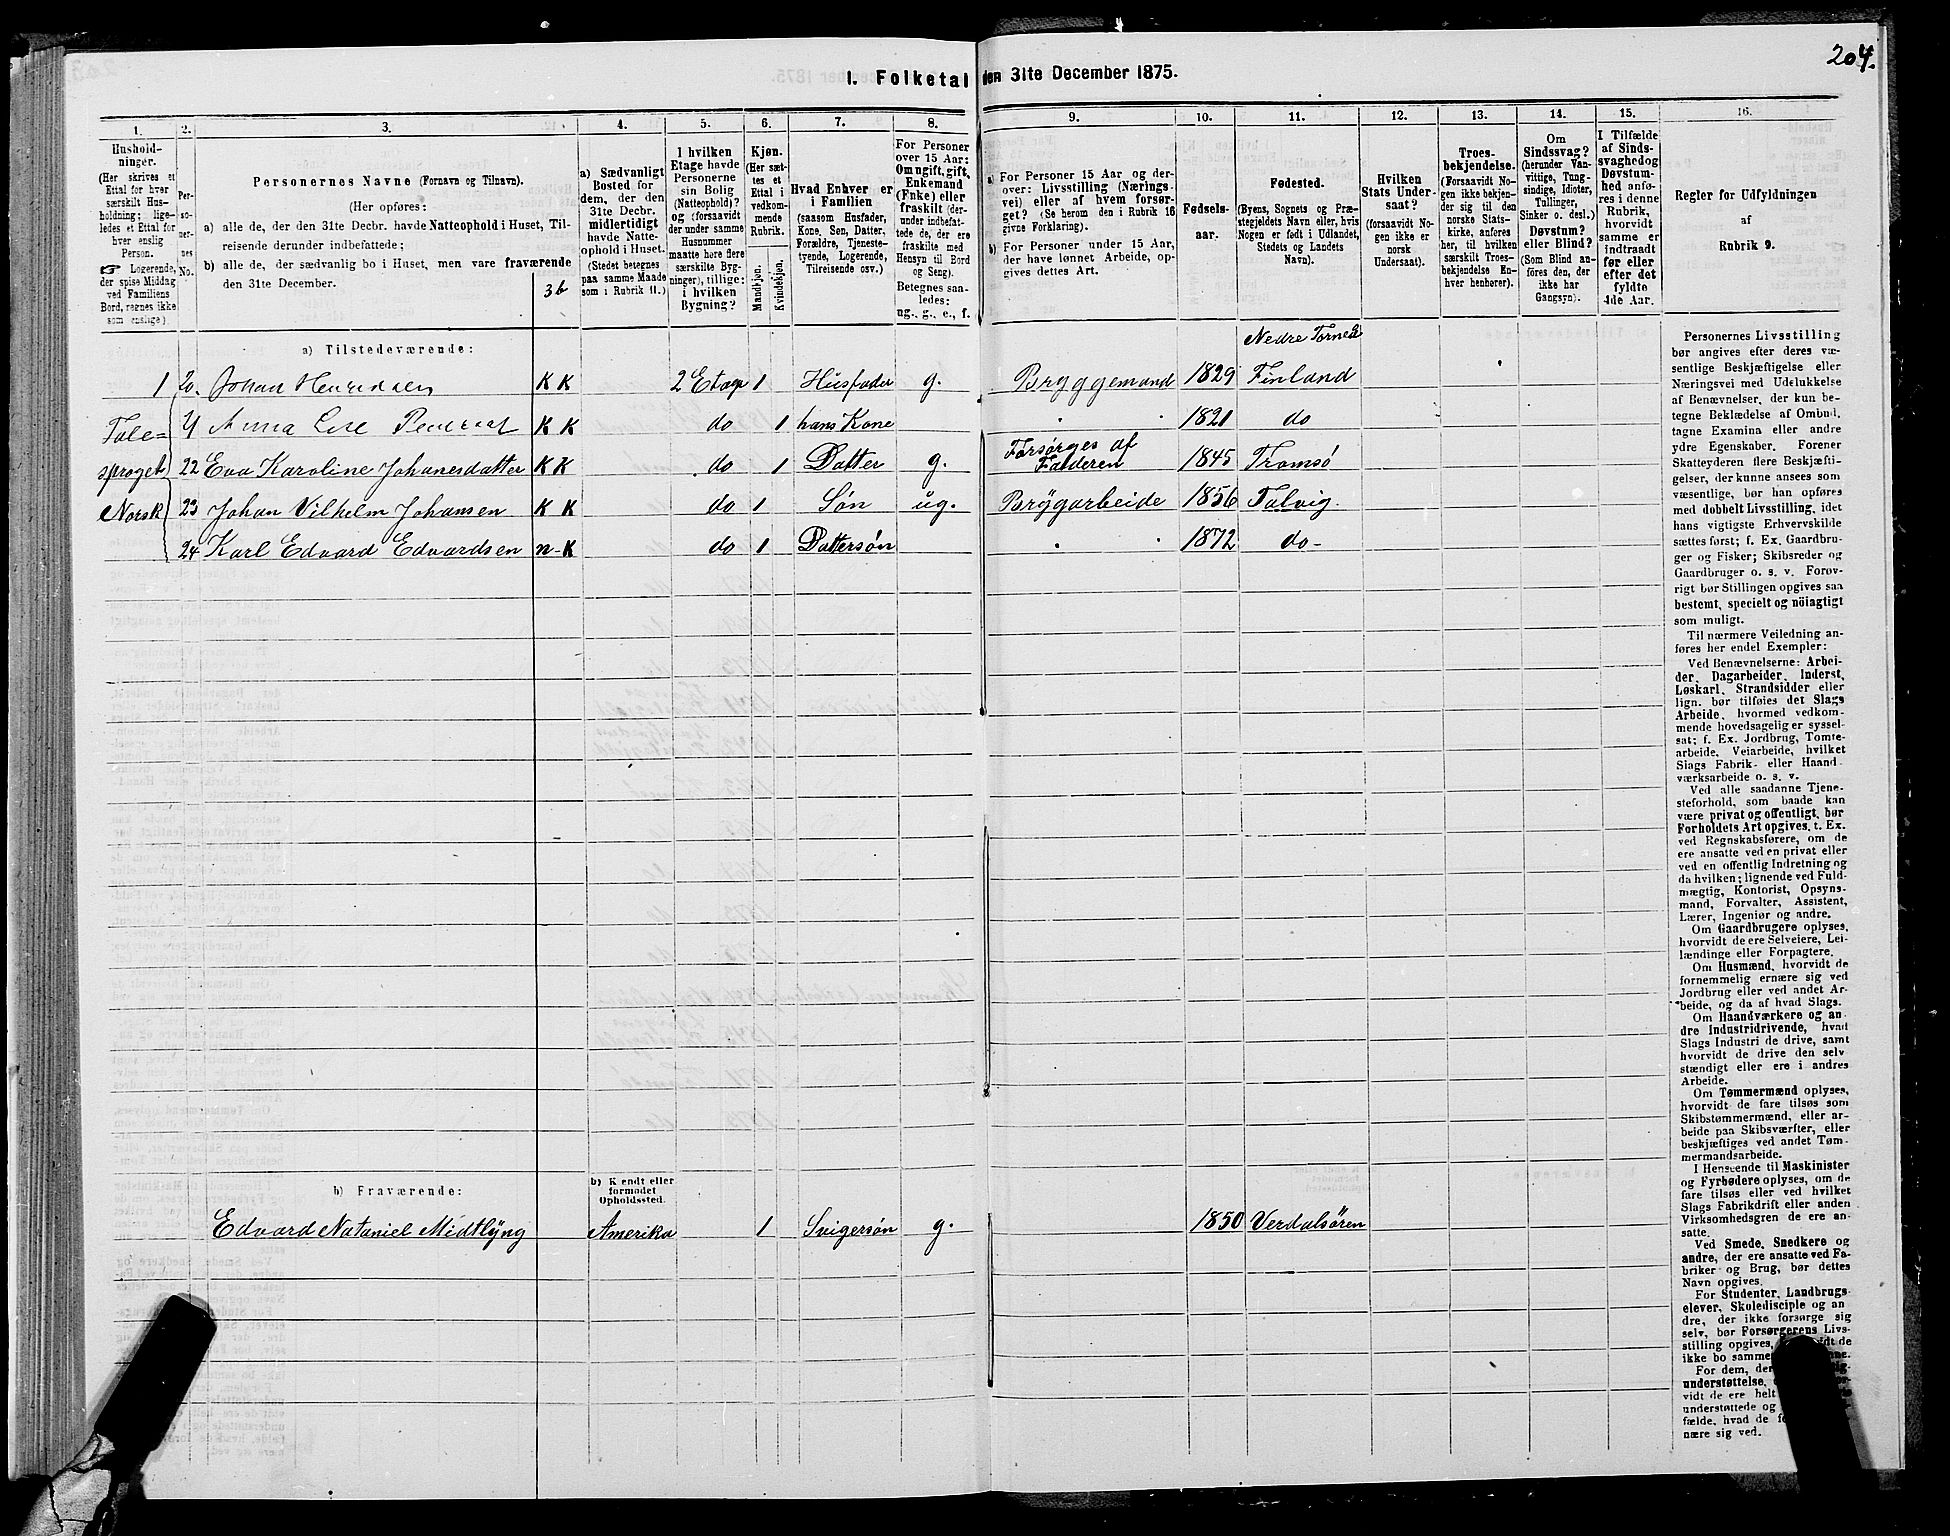 204.
I. Folketal den 31te December 1875.
1. 2. 3. 4. 5. 6. 7. 8. 9. 10. 11. 12. 13. 14. 15. 16.
Hushold-
ninger.
(Her skrives et
Ettal for hver
særskilt Hus-
holdning; lige-
ledes et Ettal for
hver enslig
Person.
☞ Logerende,
der spise Middag
ved Familiens
Bord, regnes ikke
som enslige).
Per-
so-
ner-
nes
No.
Personernes Navne (Fornavn og Tilnavn).
(Her opføres:
a) alle de, der den 31te Decbr. havde Natteophold i Huset, Til-
reisende derunder indbefattede;
b) alle de, der sædvanlig bo i Huset, men vare fraværende
den 31te December.
3b
a) Sædvanligt
Bosted for
dem, der den
31te Decbr.
midlertidigt
havde Natte-
ophold i Huset.
(Stedet betegnes
paa samme Maade
som i Rubrik 11.)
I hvilken
Etage havde
Personerne
sin Bolig
(Natteophold)?
og (forsaavidt
der under samme
Husnummer
maatte høre flere
særskilte Byg-
ninger), tillige:
i hvilken
Bygning?
Kjøn.
(Her sæt-
tes et
Ettal i
vedkom-
mende
Rubrik.
Mandkjøn.
Kvindekjøn.
Hvad Enhver er
i Familien
(saasom Husfader,
Kone, Søn, Datter,
Forældre, Tjeneste-
tyende, Logerende,
Tilreisende osv.)
For Personer
over 15 Aar:
Om ugift, gift,
Enkemand
(Enke) eller
fraskilt (der-
under indbefat-
tede de, der ere
fraskilte med
Hensyn til Bord
og Seng).
Betegnes saa-
ledes:
ug., g., e., f.
a) For Personer 15 Aar og der-
over: Livsstilling (Nærings-
vei) eller af hvem forsør-
get? (Se herom den i Rubrik 16
givne Forklaring).
b) For Personer under 15 Aar,
der have lønnet Arbeide, op-
gives dettes Art.
Fødsels-
aar.
Fødested.
(Byens, Sognets og Præ-
stegjeldets Navn eller, hvis
Nogen er født i Udlandet,
Stedets og Landets
Navn).
Hvilken
Stats Under-
saat?
(forsaavidt No-
gen ikke er
norsk
Undersaat).
Troes-
bekjendelse.
(Forsaavidt No-
gen ikke bekjen-
der sig til den
norske Stats-
kirke, anføres
her, til hvilken
særskilt Troes-
bekjendelse En-
hver henhører).
Om
Sindssvag?
(herunder Van-
vittige, Tung-
sindige, Idioter,
Tullinger,
Sinker o. desl.)
Døvstum?
eller Blind?
(Som Blind an-
føres den, der
ikke har
Gangsyn).
I Tilfælde
af Sinds-
svaghedog
Døvstum-
hed anfø-
res i denne
Rubrik,
hvorvidt
samme er
indtraadt
før eller
efter det
fyldte
4de Aar.
Regler for Udfyldningen
af
Rubrik 9.
a) Tilstedeværende:
Nedre Torneå
1 20. Johan Henriksen K K 2 Etage 1 Husfader g. Bryggemand 1829 Finland
Tale= 21 Anna Lise K K do 1 hans Kone 1821 do
Forsørges af
sproget 22 Eva Karoline Johanesdatter K K do 1 Datter g. Faderen 1845 Tromsø
Norsk 23 Johan Vilhelm Johansen K K do 1 Søn ug. Brygarbeide 1856 Talvig.
24 Karl Edvard Edvardsen n-K do 1 Dattersøn 1872 do-
b) Fraværende:
b) Kendt eller
formodet
Opholdssted.
Edvard Nataniel Midtlyng Amerika 1 Svigersøn g. 1850 Verdalsören
Personernes Livsstilling
bør angives efter deres væ-
sentlige Beskjæftigelse eller
Næringsvei med Udelukkelse
af Benævnelser, der kun be-
tegne Beklædelse af Ombud,
tagne Examina eller andre
ydre Egenskaber. Forener
Skatteyderen flere Beskjæfti-
gelser, der kunne ansees som
væsentlige, bør han opføres
med dobbelt Livsstilling, idet
hans vigtigste Erhvervskilde
sættes først; f. Ex. Gaardbru-
ger og Fisker; Skibsreder og
Gaardbruger o. s. v. Forøv-
rigt bør Stillingen opgives saa
bestemt, specielt og nöiagtigt
som muligt.
Til nærmere Veiledning an-
føres her endel Exempler:
Ved Benævnelserne: Arbei-
der, Dagarbeider, Inderst,
Løskarl, Strandsidder eller
lign. bør tilføies det Slags
Arbeide, hvormed vedkom-
mende hovedsagelig er syssel-
sat; f. Ex. Jordbrug, Tomte-
arbeide, Veiarbeide, hvilket
Slags Fabrik- eller Haand-
værksarbeide o. s. v.
Ved alle saadanne Tjene-
steforhold, som baade kan
være privat og offentligt, bør
Forholdets Art opgives, t. Ex.
ved Regnskabsførere, om de
ere ansatte ved en privat eller
ved en offentlig Indretning og
da hvilken; lignende ved Fuld-
mægtig, Kontorist, Opsyns-
mand, Forvalter, Assistent,
Lærer, Ingeniør og andre.
Om Gaardbrugere oplyses,
hvorvidt de ere Selveiere, Lei-
lændinge eller Forpagtere.
Om Husmænd, hvorvidt de
fornemmelig ernære sig ved
Jordbrug eller ved andet Ar-
beide, og da af hvad Slags.
Om Haandværkere og an-
dre Industridrivende, hvad
Slags Industri de drive, samt
hvorvidt de drive den selv-
stændigt eller ere i andres
Arbeide.
Om Tømmermænd oplyses,
hvorvidt de fare tilsøs som
Skibstømmermænd, eller ar-
beide paa Skibsværfter, eller
beskjæftiges ved andet Tøm-
mermandsarbeide.
I Henseende til Maskinister
og Fyrbødere oplyses, om de
fare tilsøs eller ved hvilket
Slags Fabrikdrift eller anden
Virksomhedsgren de ere an-
satte.
Ved Smede, Snedkere og
andre, der ere ansatte ved Fa-
briker og Brug, bør dettes
Navn opgives.
For Studenter, Landbrugs-
elever, Skoledisciple og an-
dre, der ikke forsørge sig
selv, bør Forsørgerens Livs-
stilling opgives, de
ikke bo samme
For dem, der
understøttelse,
vidt de ere helt
understøttede og
fælde, hvad de
nære sig ved.